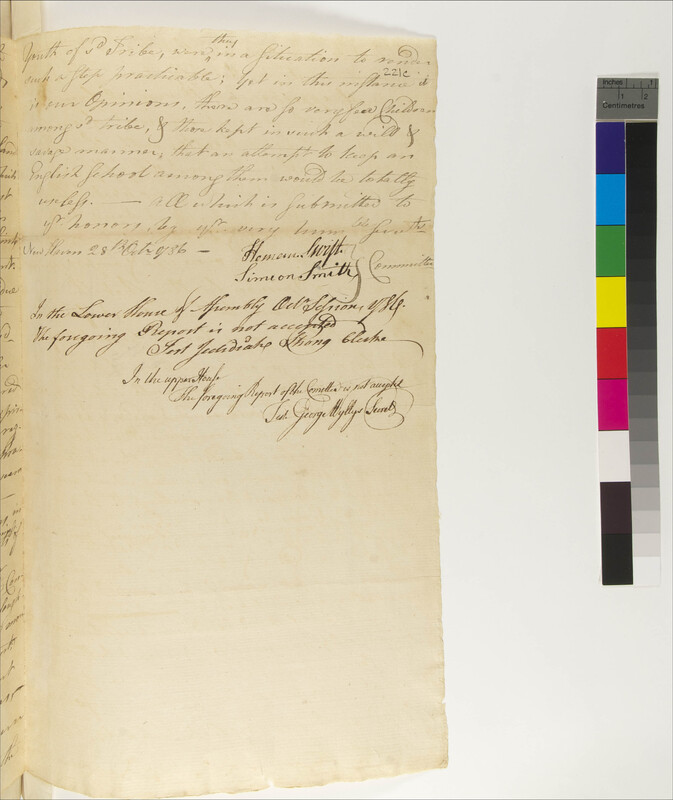 Youth of sd Tribe, were they in a Situation to render
such a Step practicable; but in this instance it
221c
is our Opinions, there are so very few Children
among sd tribe, & those kept in such a wild &
savage manner, that an attempt to keep an
English School among them would be totally
useless. — All which is submitted to
yr honors, by yr very humble Servts
New Haven 28th Octr 1786 —
Heman Swift
Simeon Smith } Committee
In the Lower House of Assembly Octr Session, 1786.
The foregoing Report is not accepted
Test Jedidiah Strong Clerke
In the upper House
The foregoing Report of the Comtee is not accepted
Test George Wyllys Secrety
Inches
1 2
Centimetres